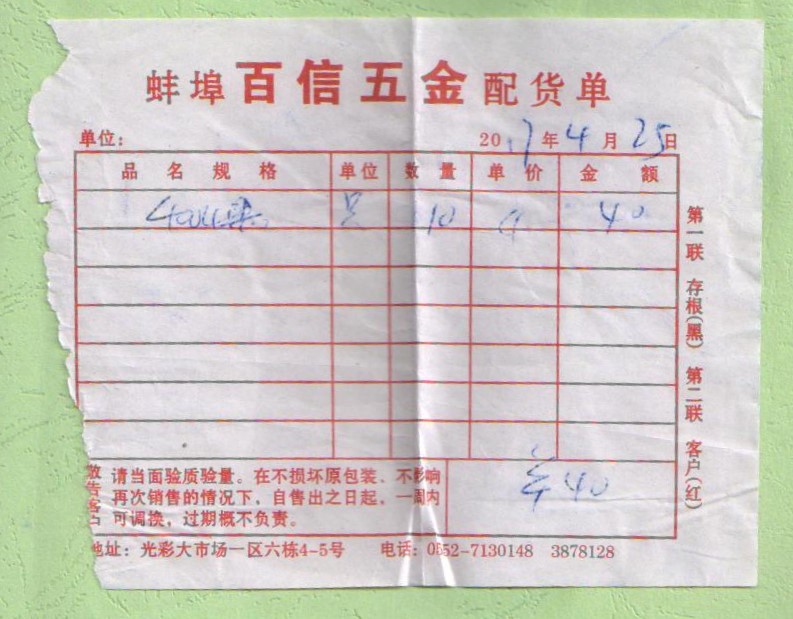 蚌埠百信五金配货单
单位: 2017年4月25日
品名规格 单位 数量 单价 金额
只 10 4 40
第一联 存根(黑) 第二联 客户(红)
敬告客户
请当面验质验量。在不损坏原包装、不影响
再次销售的情况下，自售出之日起，一周内
可调换，过期概不负责。
40
地址：光彩大市场一区六栋4-5号 电话：0552-7130148 3878128